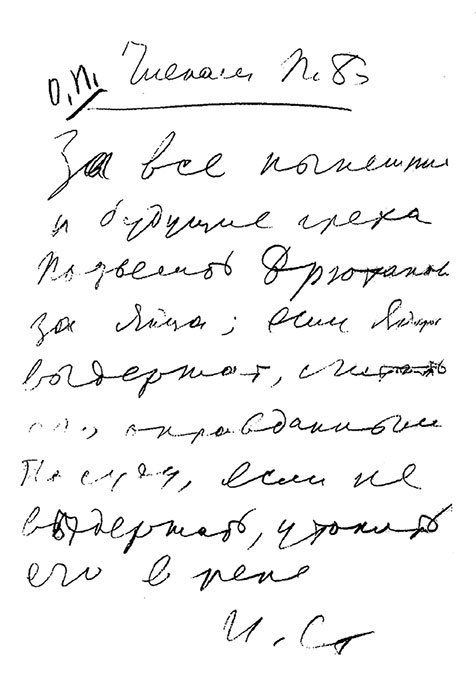 О.П. Членам П.Б.
За все нынешние
и будущие греха
подвесить Брюханова
за яйца; если яйца
выдержат, считать
его оправданным
по суду, если не
выдержат, утопить
его в реке
И. Ст